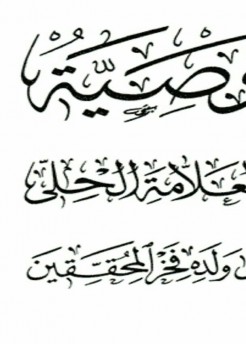 وصية
لعلامة الحلي
ولده فخر المحققين